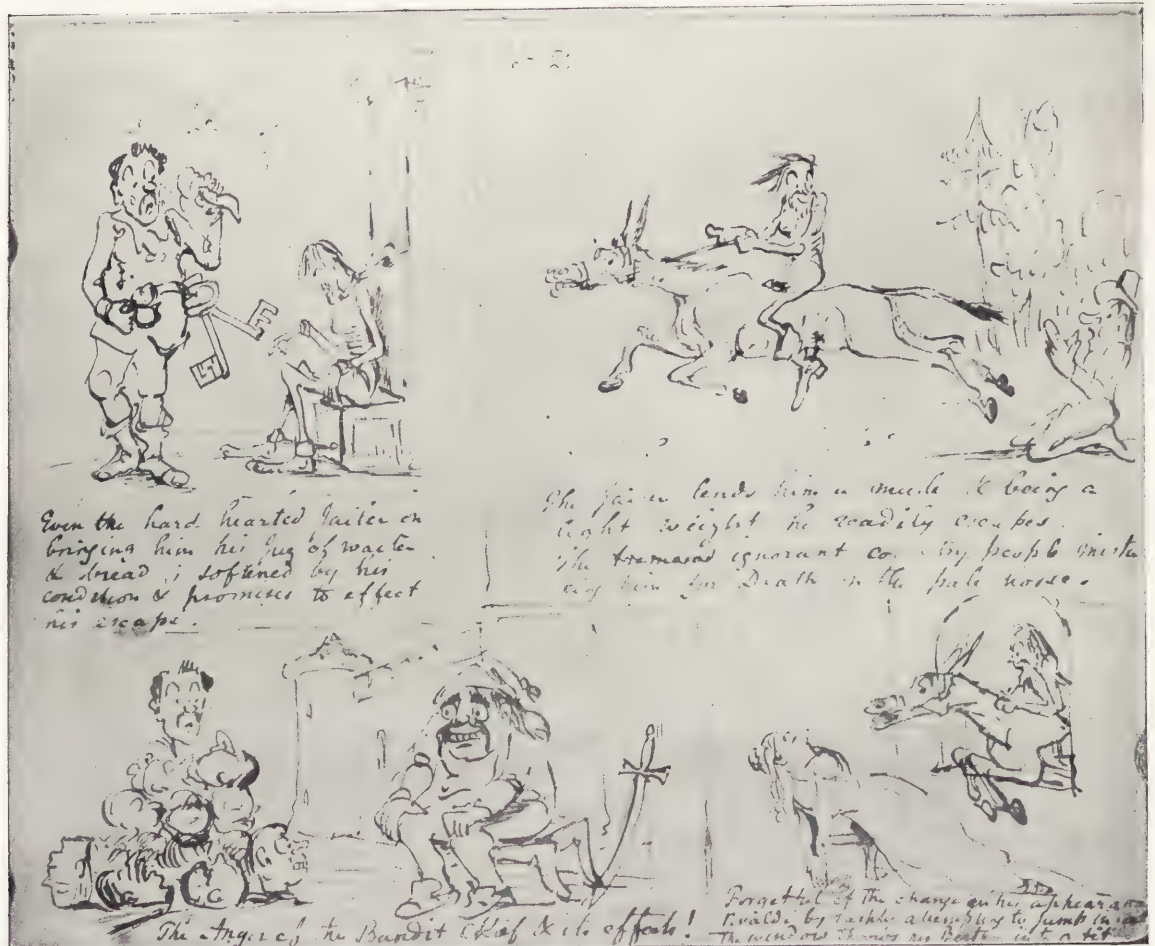 Even the hard hearted Jailer on
bringing him his Jug of water
& bread is softened by his
condition & promises to effect
his escape.
The Jailer lends him a mule & being a
light weight he readily escapes.
The ignorant people
him for Death on the pale horse.
The Anger of the Bandit Chief & its effects!
Forgetful of the change in his appearance
Rivaldi by rashly attempting to jump in at
the window throws his Bertha into a fit